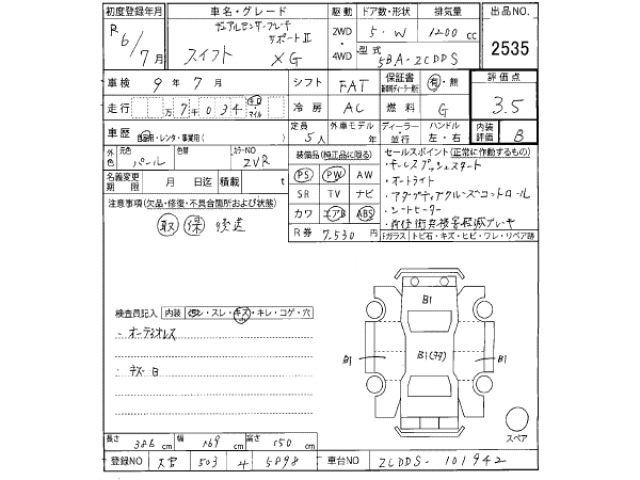 初度登録年月 車名・グレード 駆動 ドア数・形状 排気量 出品NO.
R 6/7月 デュアルセンサーブレーキサポートII 2WD 5・W 1200 cc 2535
スイフト XG ・4WD 型式 5BA-ZCDDS
車検 9年7月 シフト FAT 保証書 有・無 評価点
走行 万7千034 キロ マイル 冷房 AC 燃料 G 3.5
車歴 自家用・レンタ・事業用( ) 定員 5人 外車モデル年 年 ディーラー・並行 ハンドル 左・右 内装評価 B
外色 元色 パール 色替 カラーNO ZVR 装備品(純正品に限る) セールスポイント(正常に作動するもの)
名義変更期限 月 日迄 積載 t PS PW AW ・キーレスプッシュスタート
注意事項(欠品・修復・不具合箇所および状態) SR TV ナビ ・オートライト
取 保 後送 カワ エアB ABS ・アダプティブクルーズコントロール
・シートヒーター
R券 7,530円 ・前後衝突被害軽減ブレーキ
Fガラス トビ石・キズ・ヒビ・ワレ・リペア跡
検査員記入 内装 ・スレ・キズ・キレ・コゲ・穴
・オーディオレス
・テスB
B1
B1 B1(ﾜｸ) B1
スペア
長さ 386 cm 幅 169 cm 高さ 150 cm
登録NO 大宮 503 4 5898 車台NO ZCDDS-101942